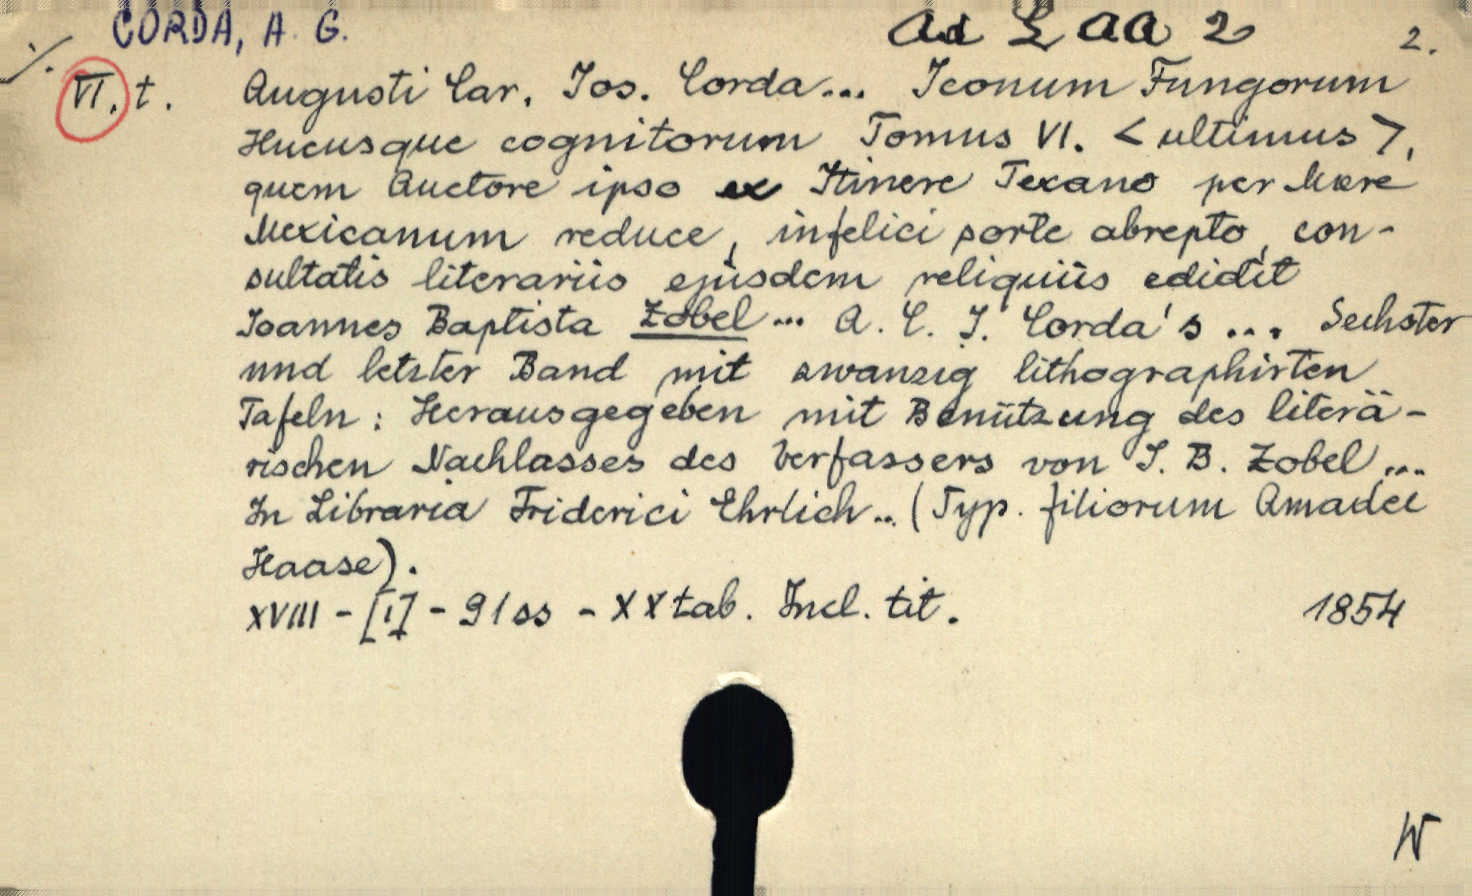 CORDA, A. G.
Ad L aa 2
2.
VI. t. Augusti Car. Jos. Corda... Iconum Fungorum
Hucusque cognitorum Tomus VI. <ultimus>,
quem Auctore ipso ex Itinere Texano per Mare
Mexicanum reduce, infelici sorte abrepto, con-
sultatis literariis ejusdem reliquiis edidit
Joannes Baptista Zobel... A. C. J. Corda's ... Sechster
und letzter Band mit zwanzig lithographirten
Tafeln: Herausgegeben mit Benützung des literä-
rischen Nachlasses des Verfassers von J. B. Zobel...
In Libraria Friderici Ehrlich... (Typ. filiorum Amadei
Haase).
XVIII - [1] - 91 ss - XX tab. Incl. tit. 1854
W